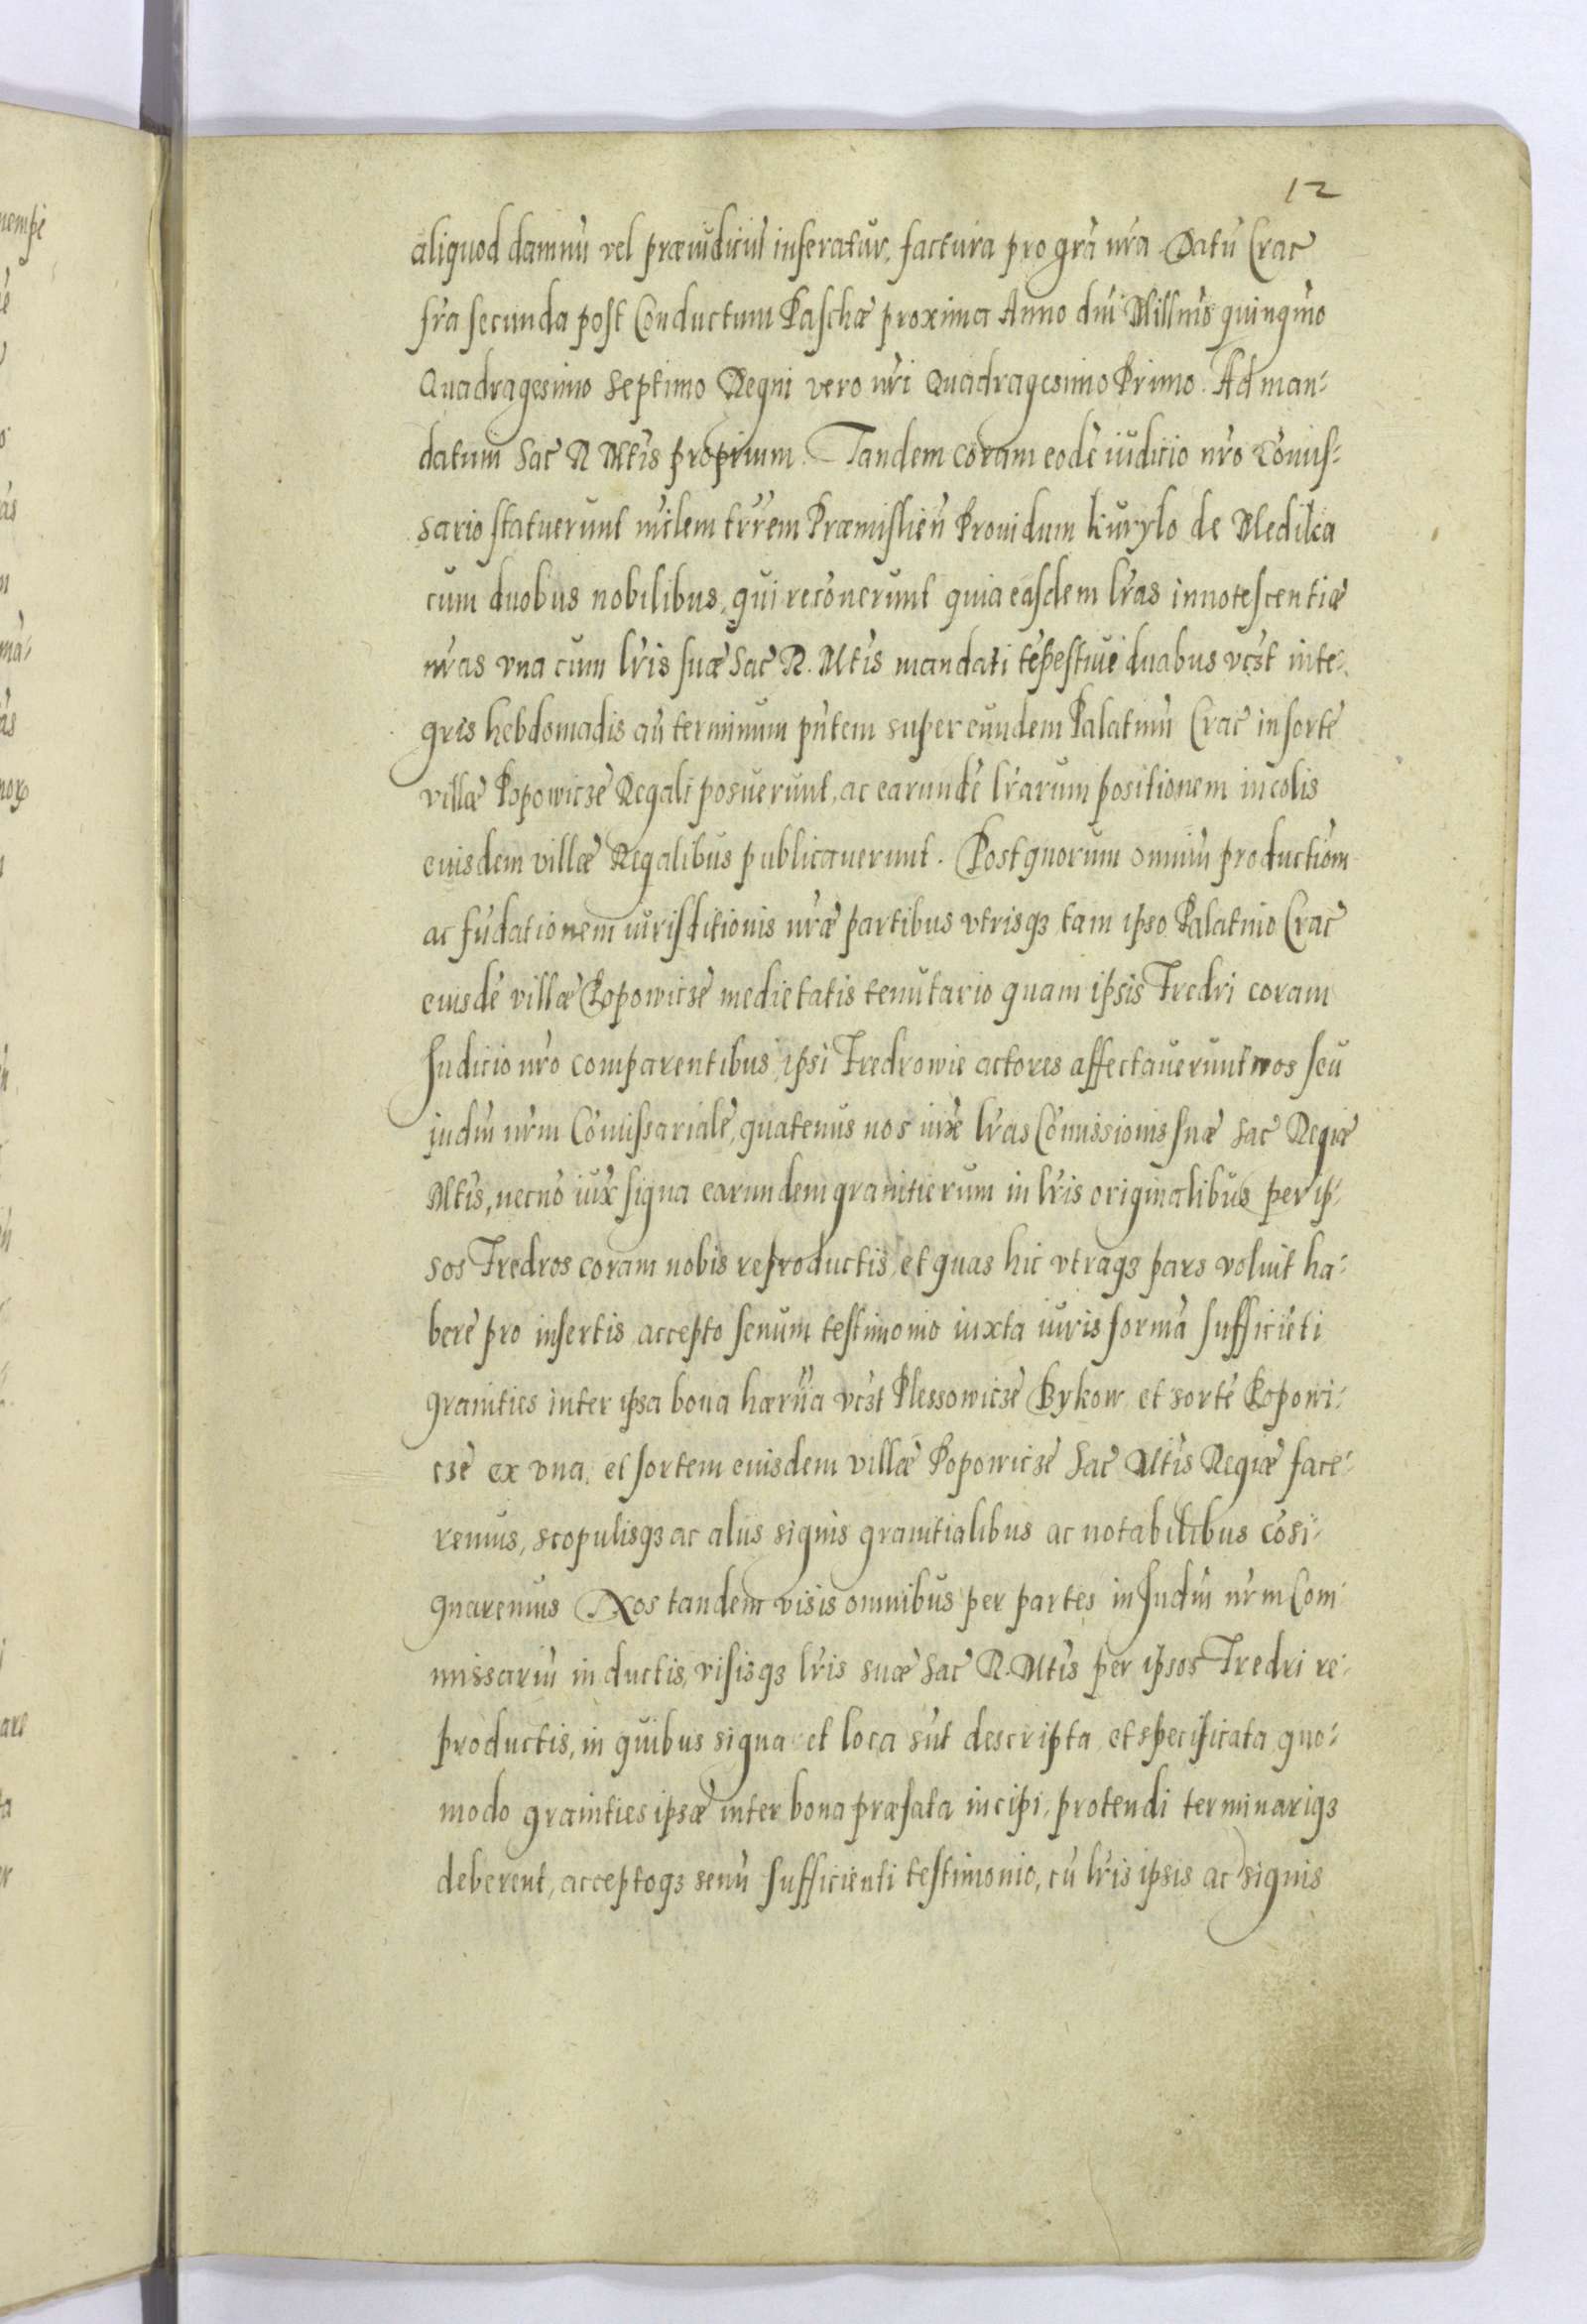 12
aliquod damnũ vel præiudiciũ inferatur, factura pro grã nrã Datũ Crac̃
frã secunda post Conductum Paschæ proxima Anno dnĩ Millmõ quingmo
Quadragesimo Septimo Regni vero nrĩ Quadragesimo Primo. Ad man⸗
datum Sac̃ R Mtis proprium. Tandem coram eodẽ iudicio nrõ Cõmis⸗
sario statuerunt mĩlem trrẽm Præmislień Prouidum kuryło de Medika
cum duobus nobilibus, qui recõnerunt quia easdem lrãs innotescentiæ
nrãs vna cum lrĩs suæ Sac̃ R. Mtis mandati tẽpestiuè duabus vcz̃t inte⸗
gris hebdomadis añ terminum pñtem super eundem Palatinũ Crac̃ in sorte
villæ Popowicze Regali posuerunt, ac earundẽ lrãrum positionem incolis
eiusdem villæ Regalibus publicauerunt. Post quorum omniũ productiõm
ac fũdationem iurisditionis nræ̃ partibus vtrisqȝ tam ipso Palatino Crac̃
eiusdẽ villæ Popowicze medietatis tenutario quam ipsis Fredri coram
Judicio nrõ comparentibus, ipsi Fredrowie actores affectauerunt nos seu
iudm̃ nrm̃ Cõmissarialẽ, quatenus nos iux̃ lrãs Cõmissionis suæ Sac̃ Regiæ
Mtis, necnõ iux̃ signa earundem granitierum in lrĩs originalibus per ip⸗
sos Fredros coram nobis reproductis, et quas hic vtraqȝ pars voluit ha⸗
bere pro insertis accepto senum testimonio iuxta iuris formã sufficiẽti
granities inter ipsa bona hærĩia vcz̃t Plessowicze Bykow et sortẽ Popowi⸗
cze ex vna, et sortem eiusdem villæ Popowicze Sac̃ Mtis Regiæ face⸗
remus, scopulisqȝ ac alijs signis granitialibus ac notabilibus cõsi⸗
gnaremus Nos tandem visis omnibus per partes in Judm̃ nrm̃ Com
missariũ inductis, visisqȝ lrĩs suæ Sac̃ R. Mtis per ipsos Fredri re⸗
productis, in quibus signa et loca sũt descripta et specificata quo⸗
modo granities ipsæ inter bona præfata incipi, protendi terminariqȝ
deberent, acceptoqȝ senũ sufficienti testimonio, cũ lrĩs ipsis ac signis